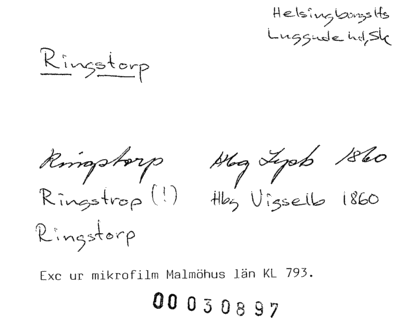 Helsingborgs lfs
Luggude hd, Sk
Ringstorp
Ringstorp Hbg Lysb 1860
Ringstrop (!) Hbg Vigselb 1860
Ringstorp
Exc ur mikrofilm Malmöhus län KL 793.
00 030897